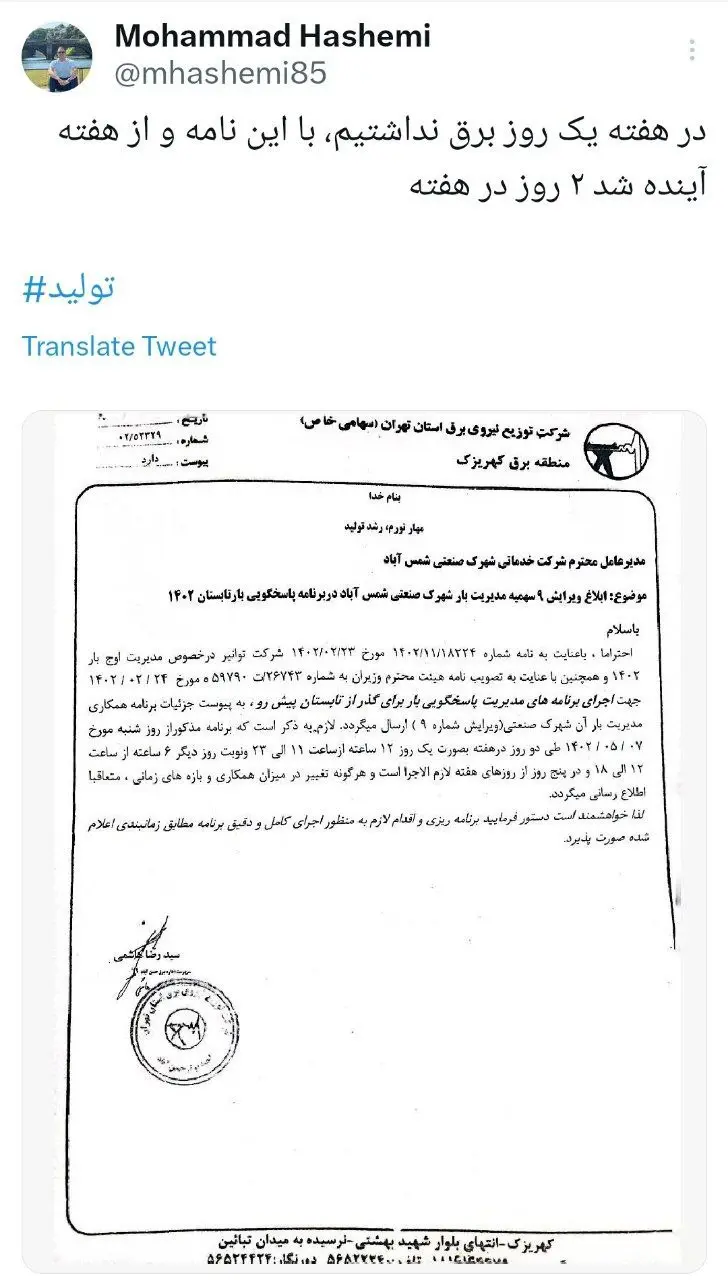 Mohammad Hashemi
@mhashemi85
در هفته یک روز برق نداشتیم، با این نامه و از هفته
آینده شد ۲ روز در هفته
#تولید
Translate Tweet
شرکت توزیع نیروی برق استان تهران (سهامی خاص)
منطقه برق کهریزک
تاریخ :
شماره : ۰۲/۵۲۳۲۹
پیوست : دارد
بنام خدا
مهار تورم، رشد تولید
مدیرعامل محترم شرکت خدماتی شهرک صنعتی شمس آباد
موضوع: ابلاغ ویرایش ۹ سهمیه مدیریت بار شهرک صنعتی شمس آباد دربرنامه پاسخگویی بارتابستان ۱۴۰۲
باسلام
احتراما ، باعنایت به نامه شماره ۱۴۰۲/۱۱/۱۸۲۲۴ مورخ ۱۴۰۲/۰۲/۲۳ شرکت توانیر درخصوص مدیریت اوج بار
۱۴۰۲ و همچنین با عنایت به تصویب نامه هیئت محترم وزیران به شماره ۲۶۷۴۳/ت ۵۹۷۹۰ ه مورخ ۲۴ / ۰۲ / ۱۴۰۲
جهت اجرای برنامه های مدیریت پاسخگویی بار برای گذر از تابستان پیش رو ، به پیوست جزئیات برنامه همکاری
مدیریت بار آن شهرک صنعتی(ویرایش شماره ۹ ) ارسال میگردد. لازم به ذکر است که برنامه مذکوراز روز شنبه مورخ
۰۷ / ۰۵ / ۱۴۰۲ طی دو روز درهفته بصورت یک روز ۱۲ ساعته ازساعت ۱۱ الی ۲۳ ونوبت روز دیگر ۶ ساعته از ساعت
۱۲ الی ۱۸ و در پنج روز از روزهای هفته لازم الاجرا است و هرگونه تغییر در میزان همکاری و بازه های زمانی ، متعاقبا
اطلاع رسانی میگردد.
لذا خواهشمند است دستور فرمایید برنامه ریزی و اقدام لازم به منظور اجرای کامل و دقیق برنامه مطابق زمانبندی اعلام
شده صورت پذیرد.
سید رضا هاشمی
کهریزک-انتهای بلوار شهید بهشتی-نرسیده به میدان نبائین
دورنگار:۵۶۵۲۴۴۲۴